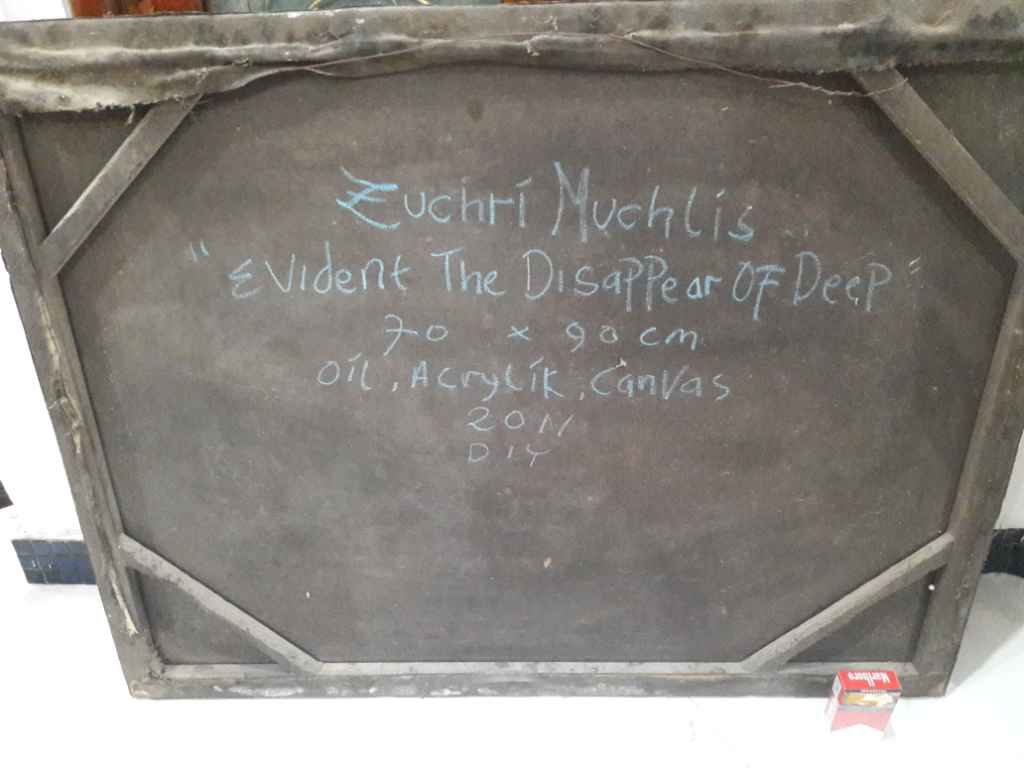 Zuchri Muchlis
"Evident The Disappear Of Deep"
70 x 90 cm
Oil, Acrylik, Canvas
2011
DIY
Marlboro